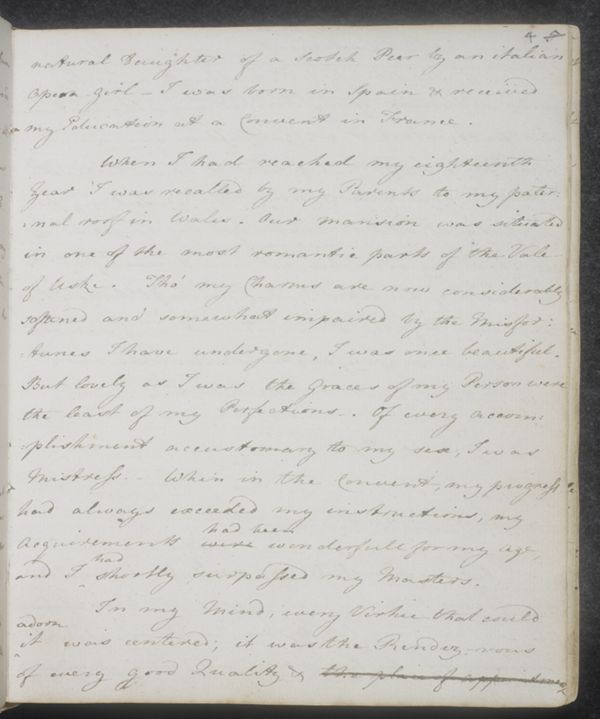 4
natural Daughter of a Scotch Peer by an italian
opera-girl — I was born in Spain & received
my Education at a Convent in France.
When I had reached my eighteenth
Year I was recalled by my Parents to my pater:
:nal roof in Wales. Our mansion was situated
in one of the most romantic parts of the Vale
of Uske. Tho' my Charms are now considerably
softened and somewhat impaired by the Misfor:
:tunes I have undergone, I was once beautiful.
But lovely as I was the Graces of my Person were
the least of my Perfections. Of every accom:
:plishment accustomary to my sex, I was
Mistress. When in the Convent, my progress
had always exceeded my instructions, my
had been
Acquirements were wonderfull for my age,
had
and I shortly surpassed my Masters.
In my Mind, every Virtue that could
adorn
it was centered; it was the Rendez-vous
of every good Quality & the place of appointment